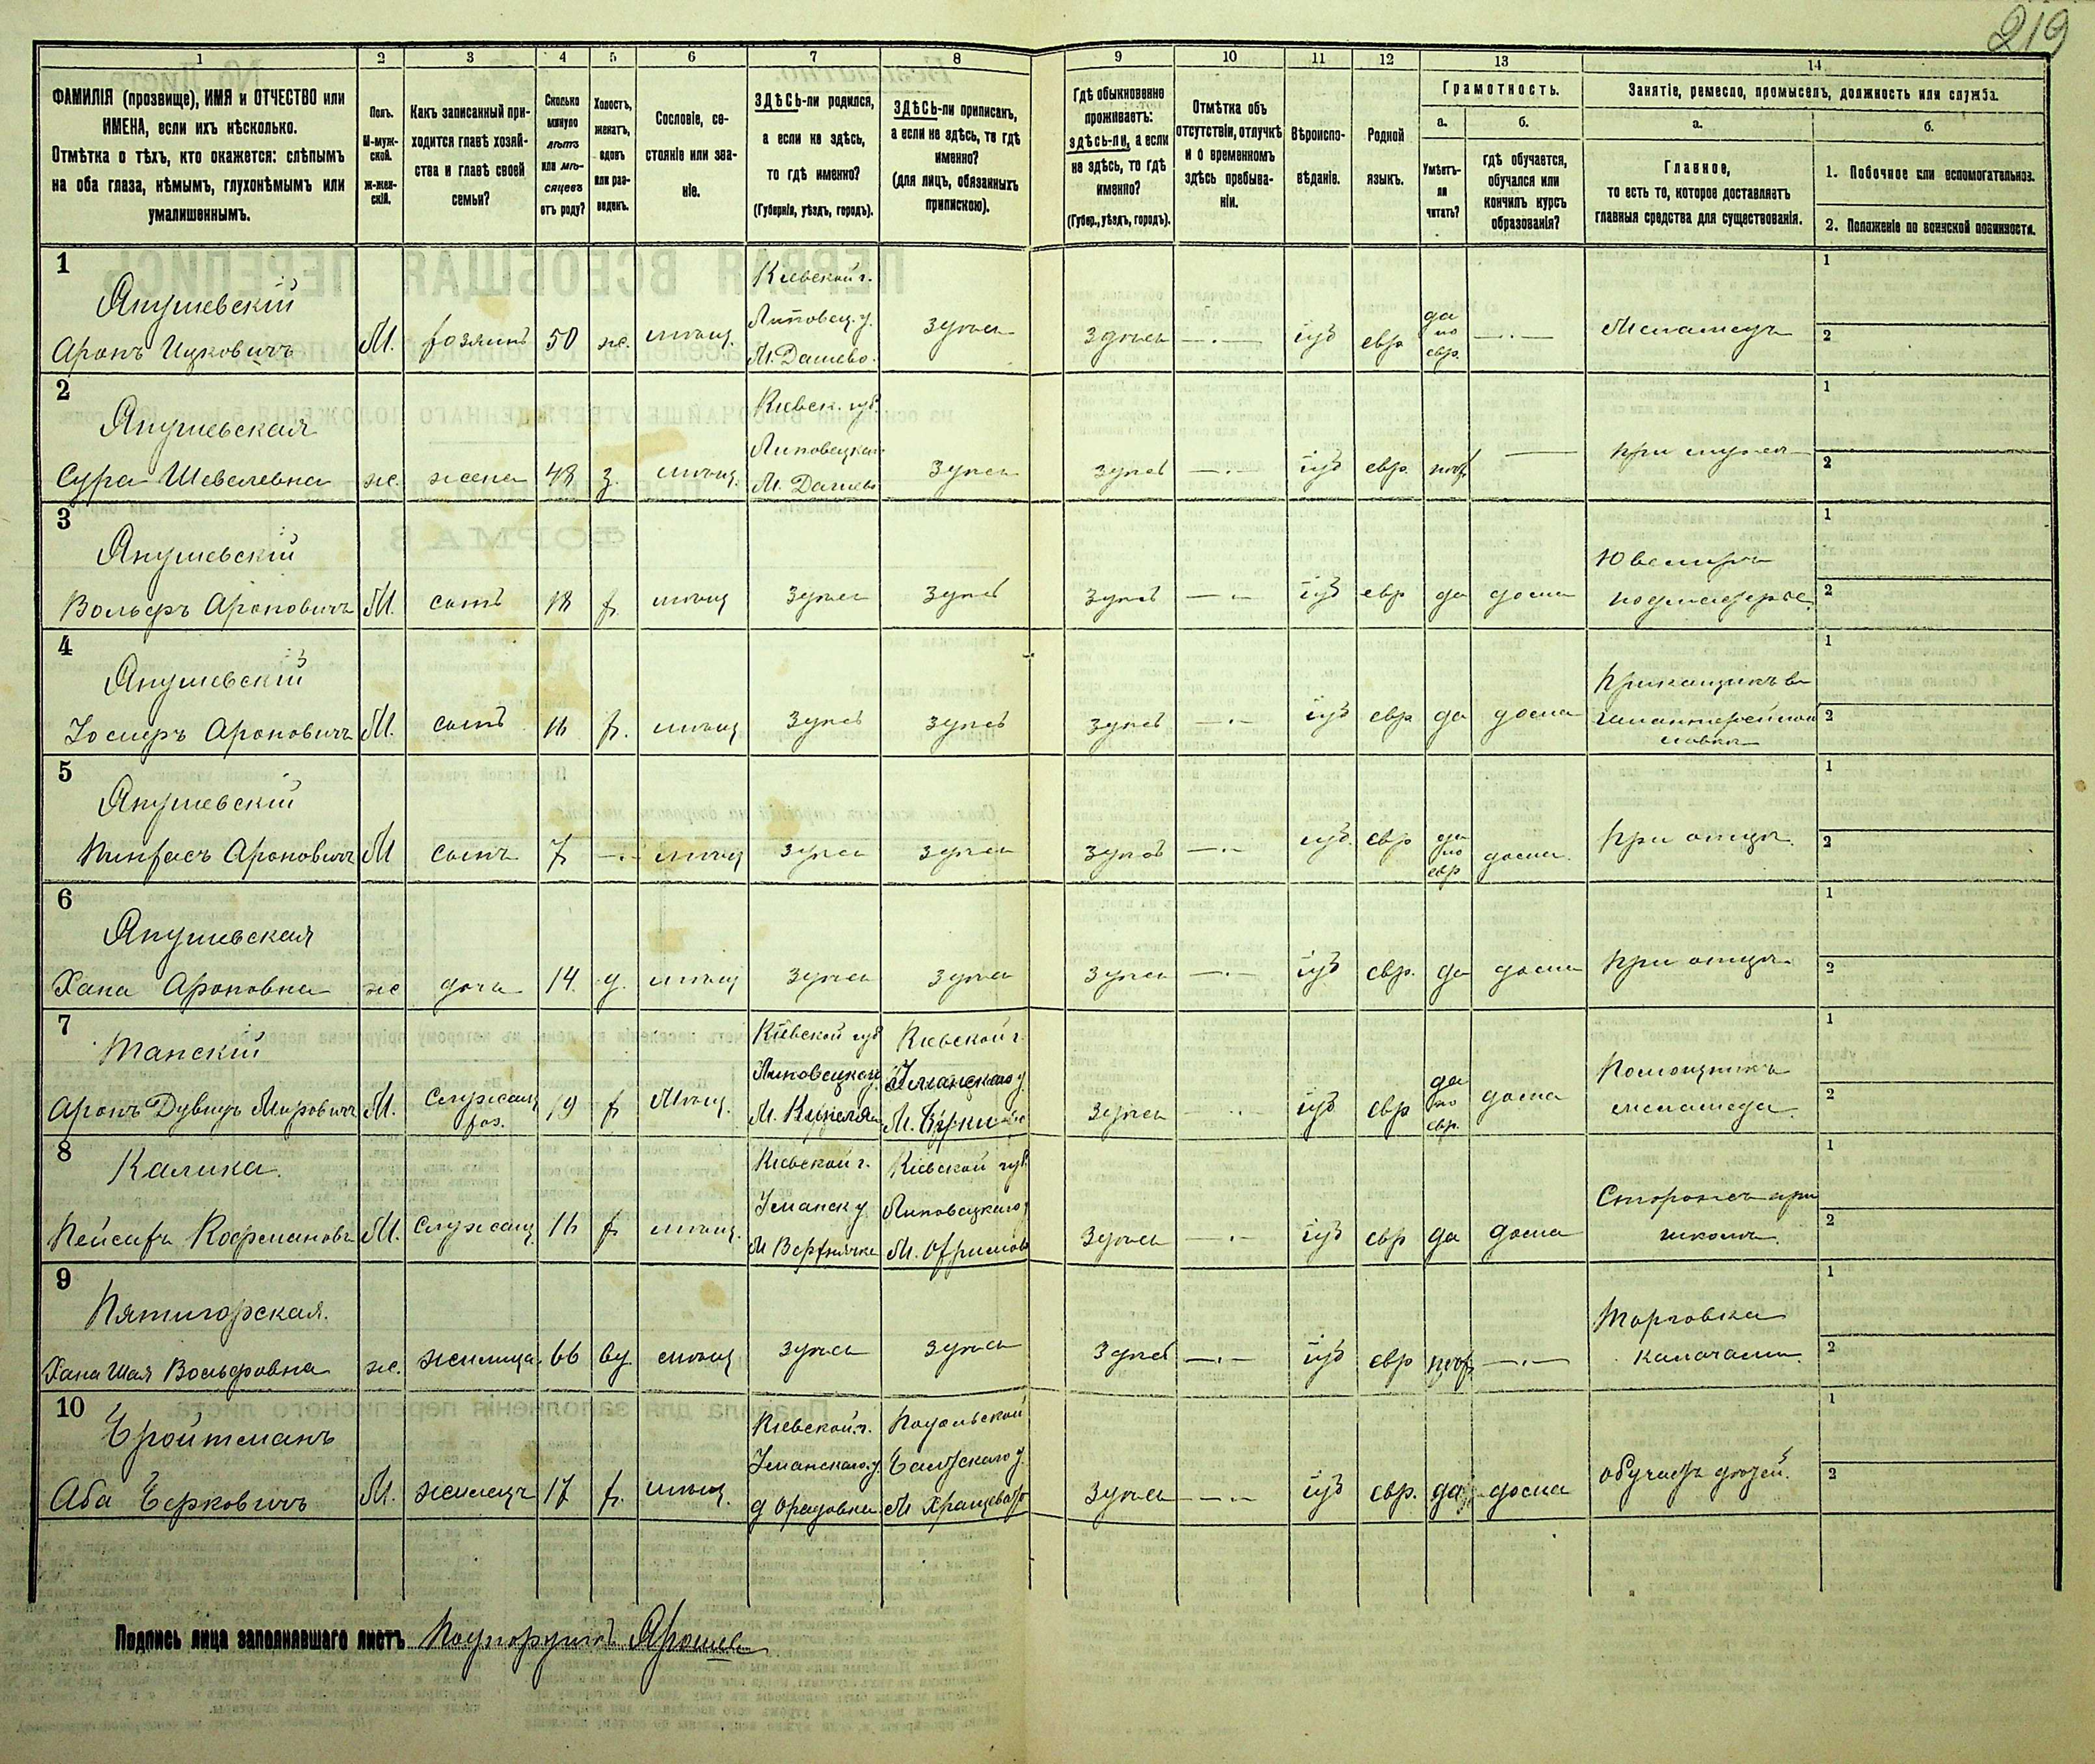 219
1 2 3 4 5 6 7 8 9 10 11 12 13 14
ФАМИЛІЯ (прозвище), ИМЯ и ОТЧЕСТВО или ИМЕНА, если ихъ нѣсколько.
Отмѣтка о тѣхъ, кто окажется: слѣпымъ на оба глаза, нѣмымъ, глухонѣмымъ или умалишеннымъ.
Полъ.
М-мужской.
Ж-женскій.
Какъ записанный приходится главѣ хозяйства и главѣ своей семьи?
Сколько минуло лѣтъ или мѣсяцевъ отъ роду?
Холостъ, женатъ, вдовъ или разведенъ.
Сословіе, состояніе или званіе.
ЗДѢСЬ-ли родился, а если не здѣсь, то гдѣ именно?
(Губернія, уѣздъ, городъ).
ЗДѢСЬ-ли приписанъ, а если не здѣсь, то гдѣ именно?
(для лицъ, обязанныхъ припискою).
Гдѣ обыкновенно проживаетъ: здѣсь-ли, а если не здѣсь, то гдѣ именно?
(Губер., уѣздъ, городъ).
Отмѣтка объ отсутствіи, отлучкѣ и о временномъ здѣсь пребываніи.
Вѣроисповѣданіе.
Родной языкъ.
Грамотность.
а.
Умѣетъ-ли читать?
б.
гдѣ обучается, обучался или кончилъ курсъ образованія?
Занятіе, ремесло, промыселъ, должность или служба.
а.
Главное,
то есть то, которое доставляетъ главныя средства для существованія.
б.
1. Побочное или вспомогательное.
2. Положеніе по воинской повинности.
1
Янушевскій
Аронъ Ицковичъ М. хозяинъ 50 ж. мѣщ. Кіевской г. Липовец. у. М. Дашево. здѣсь здѣсь іуд евр. да по евр. Меламедъ
1
2
2
Янушевская
Сура Шевелевна ж. жена 48 з. мѣщ. Кіевск. губ. Липовецкаго М. Дашево здѣсь здѣсь іуд евр. нѣтъ при мужѣ
1
2
3
Янушевскій
Вольфъ Ароновичъ М. сынъ 18 х. мѣщ здѣсь здѣсь здѣсь іуд евр да дома Ювелиръ подмастерье
1
2
4
Янушевскій
Іосифъ Ароновичъ М. сынъ 16 х. мѣщ здѣсь здѣсь здѣсь іуд евр да дома Прикащикъ въ галантерейной лавкѣ
1
2
5
Янушевскій
Пинхасъ Ароновичъ М сынъ 7 мѣщ здѣсь здѣсь здѣсь іуд. евр да по евр дома. при отцѣ.
1
2
6
Янушевская
Хана Ароновна ж дочь 14. д. мѣщ здѣсь здѣсь здѣсь іуд евр. да дома при отцѣ
1
2
7
Танскій
Аронъ Дувидъ Мировичъ М. Служащ хоз. 19 х Мѣщ. Кіевской губ Липовецкаго у М. Кіевской г. Уманскаго у М. здѣсь іуд евр да по евр. дома Помощникъ меламеда.
1
2
8
Калика.
Пейсахъ М. Служащ. 16 х мѣщ. Кіевской г. Уманск у. М Верхнячка Кіевской губ. Липовецкаго у М. здѣсь іуд евр да дома Сторожъ при школѣ.
1
2
9
Пятигорская.
Хана Шая Вольфовна ж. жилица 66 вд. мѣщ здѣсь здѣсь здѣсь іуд евр нѣтъ Торговка калачами.
1
2
10
Бройтманъ
Аба Берковичъ М. жилецъ 17 х. мѣщ. Кіевской г. Уманскаго у. д Орадовка Подольской Балтскаго у. М Хращевато здѣсь іуд евр. да дома обучаетъ дѣтей.
1
2
Подпись лица заполнявшаго листъ Подпоручикъ